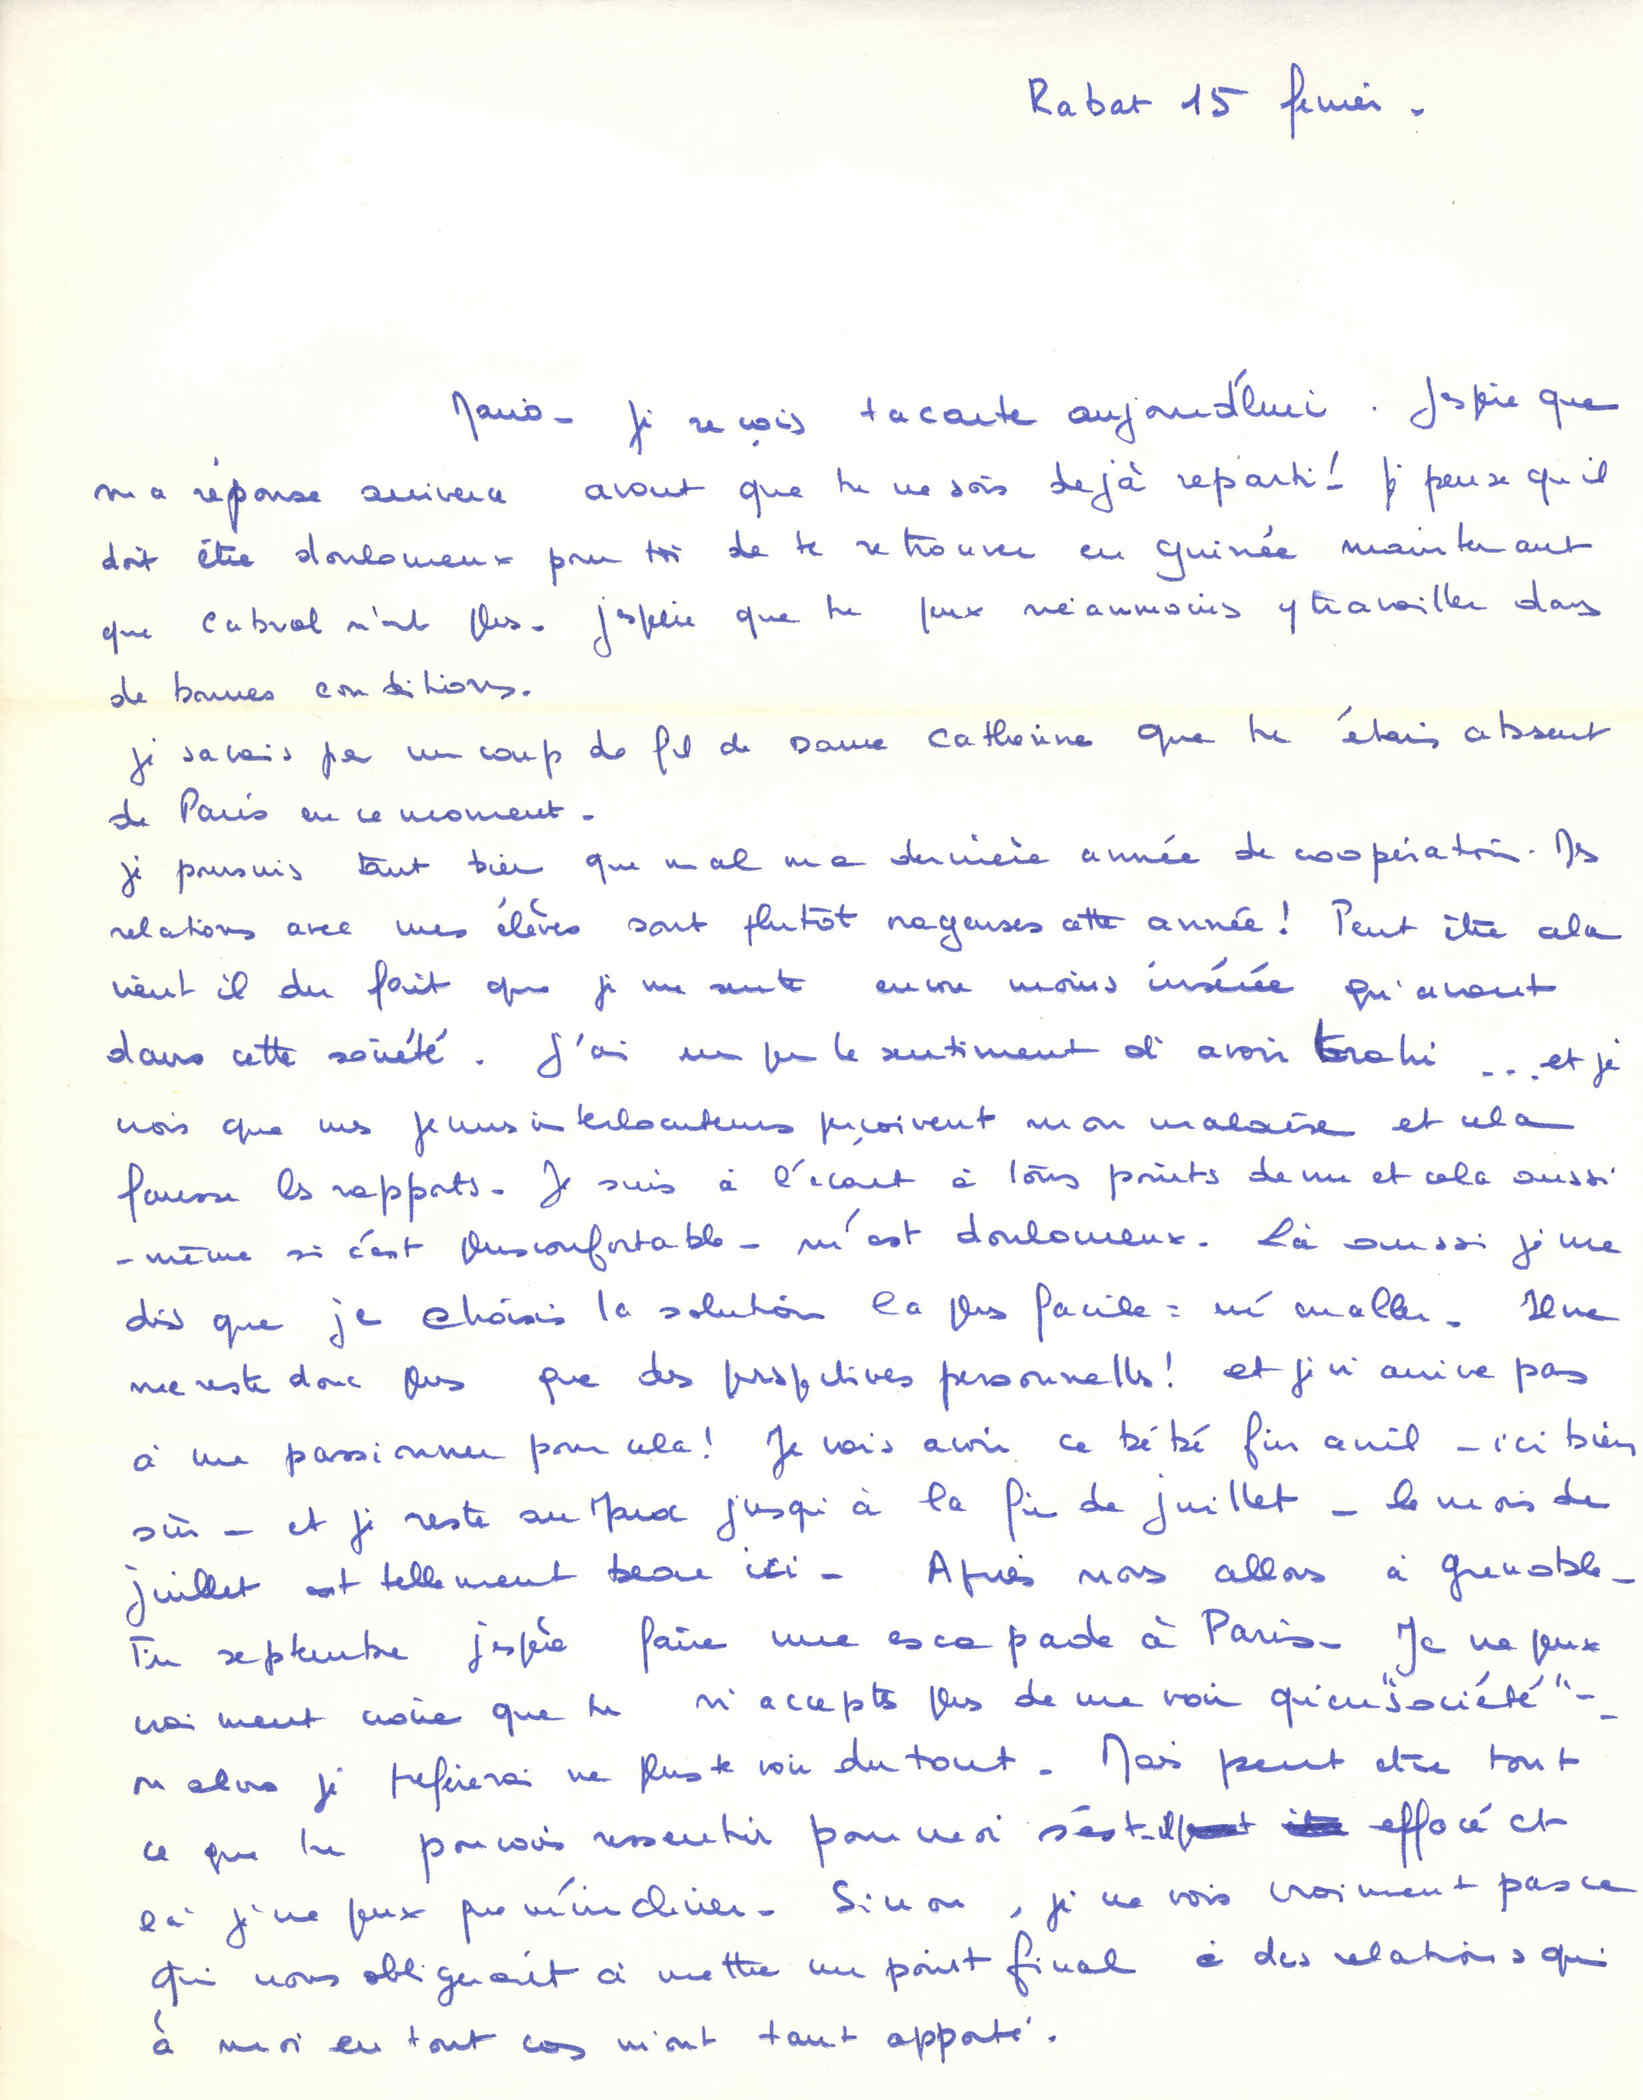 Rabat 15 fevrier.
Mario - Je reçois ta carte aujourd'hui. J'espère que
ma réponse arrivera avant que tu ne sois dejà reparti! Je pense qu'il
doit être douloureux pour toi de te retrouver en guinée maintenant
que Cabral n'est plus. J'espère que tu peux néanmoins y travailler dans
de bonnes conditions.
Je savais par un coup de fil de Catherine que tu étais absent
de Paris en ce moment.
Je poursuis tant bien que mal ma dernière année de coopération. Mes
relations avec mes élèves sont plutôt orageuses cette année! Peut être cela
vient il du fait que je me sente encore moins insérée qu'avant
dans cette société. J'ai un peu le sentiment d'avoir trahi ... et je
crois que mes jeunes interlocuteurs perçoivent mon malaise et cela
fausse les rapports. Je suis à l'écart à tous points de vue et cela aussi
- même si c'est plus confortable - m'est douloureux. Là aussi je me
dis que je choisis la solution la plus facile = m'en aller. Il ne
me reste donc plus que des perspectives personnelles! et je n'arrive pas
à me passionner pour cela! Je vais avoir ce bébé fin avril - ici bien
sûr - et je reste au Maroc jusqu'à la fin de juillet - le mois de
juillet est tellement beau ici - Après nous allons à Grenoble -
Fin septembre j'espère faire une escapade à Paris - Je ne peux
vraiment croire que tu n'acceptes plus de me voir qu'en "société" -
ou alors je préfèrerai ne plus te voir du tout. Mais peut etre tout
ce que tu pouvais ressentir pour moi s'est-il effacé et
là je ne peux que m'incliner - Sinon, je ne vois vraiment pas ce
qui nous obligerait à mettre un point final à des relations qui
à moi en tout cas m'ont tant apporté.